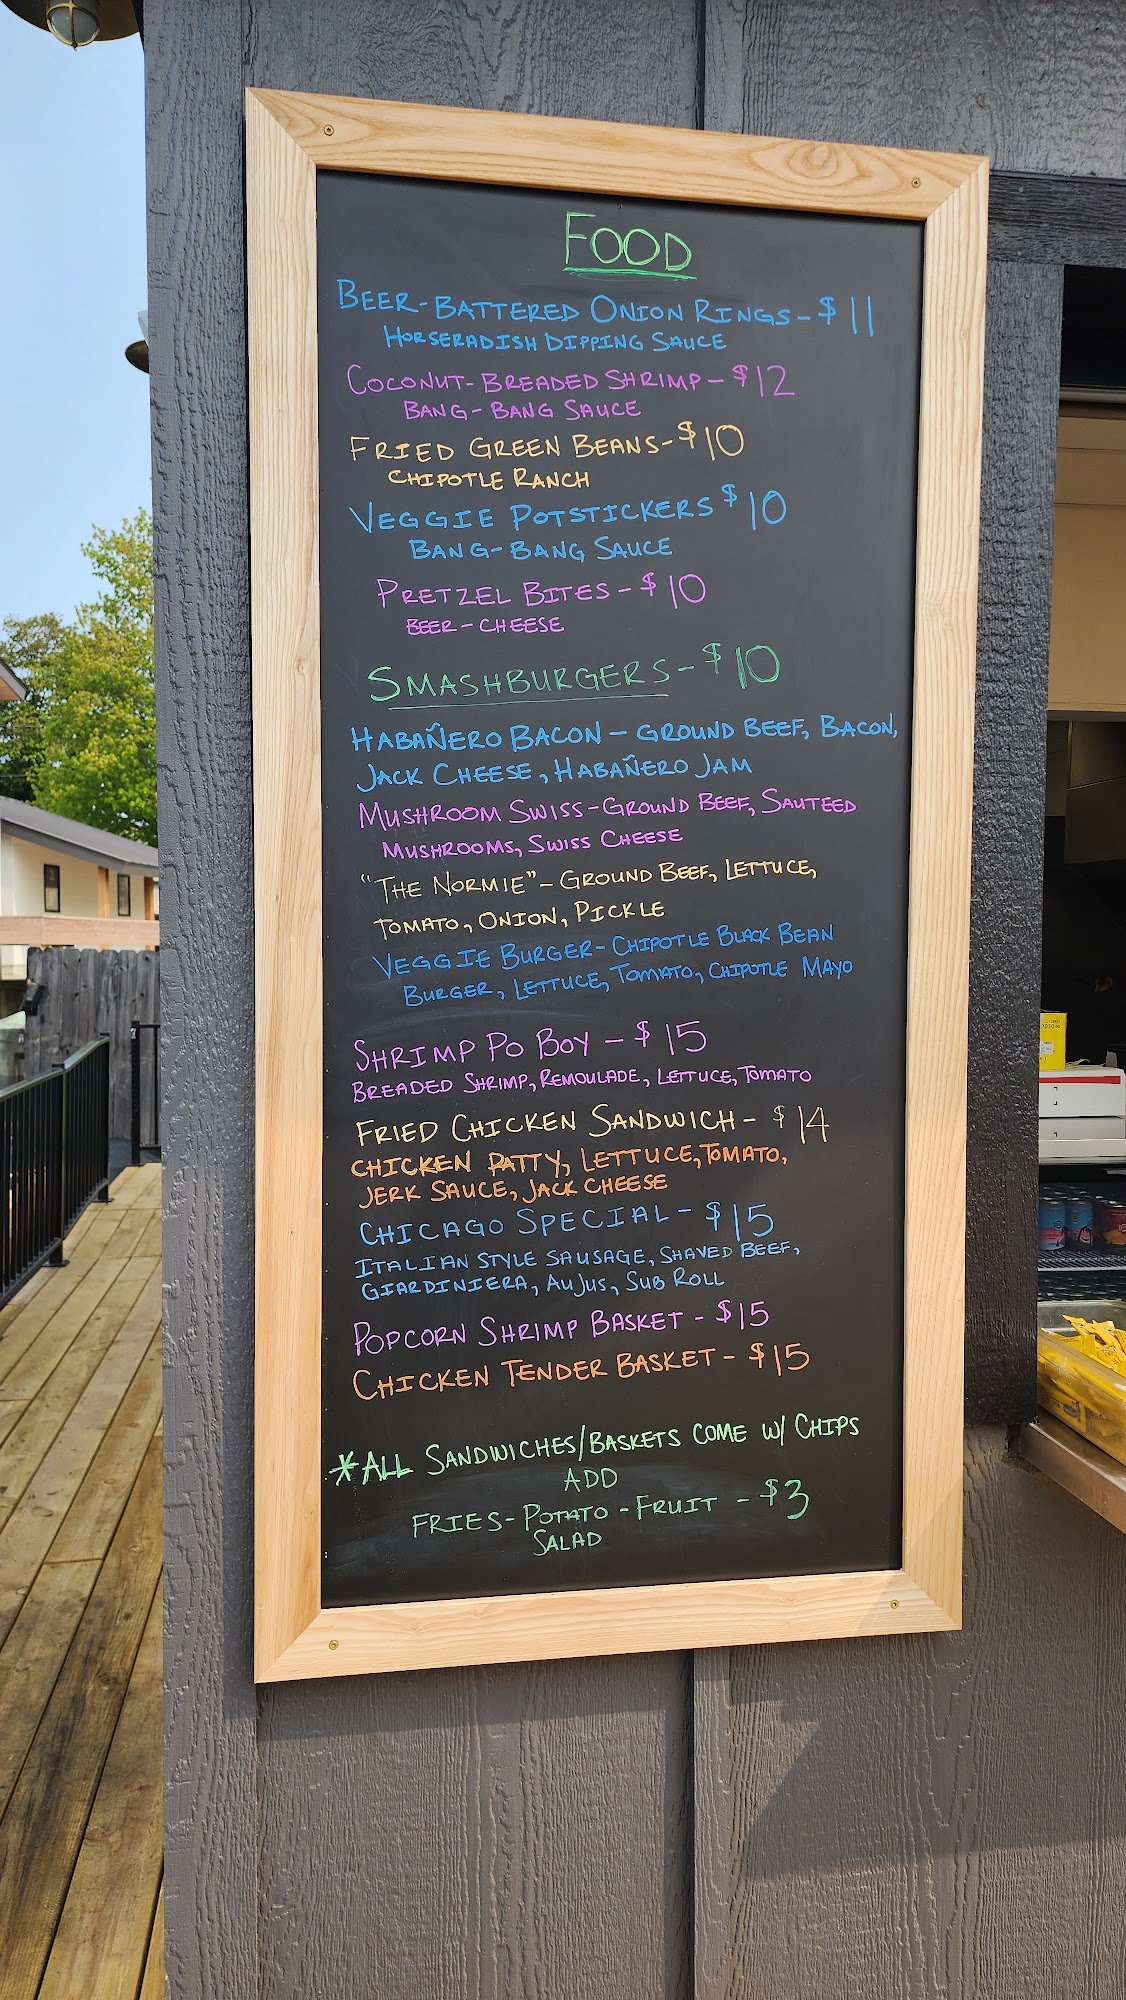 FOOD
BEER-BATTERED ONION RINGS - $11
HORSERADISH DIPPING SAUCE
COCONUT-BREADED SHRIMP - $12
BANG-BANG SAUCE
FRIED GREEN BEANS - $10
CHIPOTLE RANCH
VEGGIE POTSTICKERS $10
BANG-BANG SAUCE
PRETZEL BITES - $10
BEER-CHEESE
SMASHBURGERS - $10
HABAÑERO BACON - GROUND BEEF, BACON,
JACK CHEESE, HABAÑERO JAM
MUSHROOM SWISS - GROUND BEEF, SAUTEED
MUSHROOMS, SWISS CHEESE
"THE NORMIE" - GROUND BEEF, LETTUCE,
TOMATO, ONION, PICKLE
VEGGIE BURGER - CHIPOTLE BLACK BEAN
BURGER, LETTUCE, TOMATO, CHIPOTLE MAYO
SHRIMP PO BOY - $15
BREADED SHRIMP, REMOULADE, LETTUCE, TOMATO
FRIED CHICKEN SANDWICH - $14
CHICKEN PATTY, LETTUCE, TOMATO,
JERK SAUCE, JACK CHEESE
CHICAGO SPECIAL - $15
ITALIAN STYLE SAUSAGE, SHAVED BEEF,
GIARDINIERA, AUJUS, SUB ROLL
POPCORN SHRIMP BASKET - $15
CHICKEN TENDER BASKET - $15
*ALL SANDWICHES/BASKETS COME W/ CHIPS
ADD
FRIES - POTATO - FRUIT - $3
SALAD